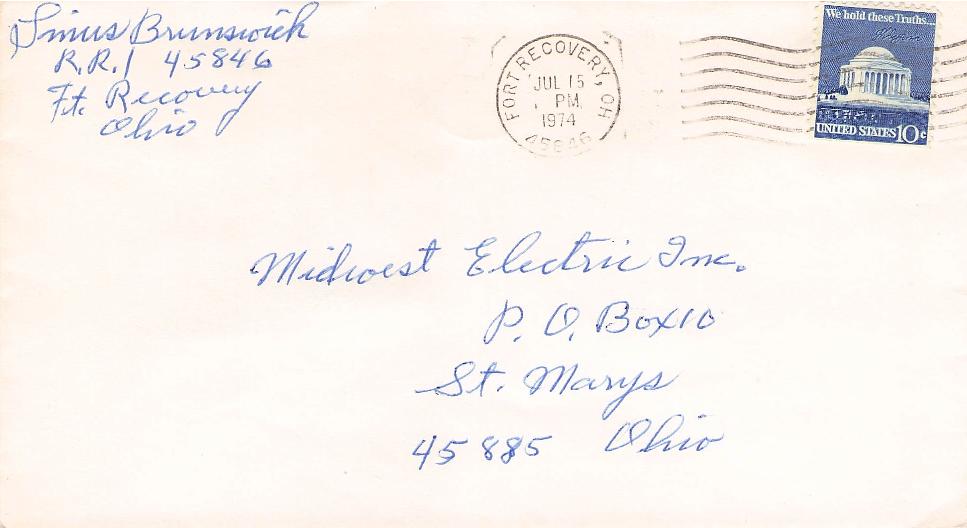 Linus Brunswick
R.R.1 45846
Ft. Recovery
Ohio
FORT RECOVERY, OH
JUL 15
PM
1974
45846
We hold these Truths...
UNITED STATES 10c
Midwest Electric Inc.
P.O. Box 10
St. Marys
45885 Ohio